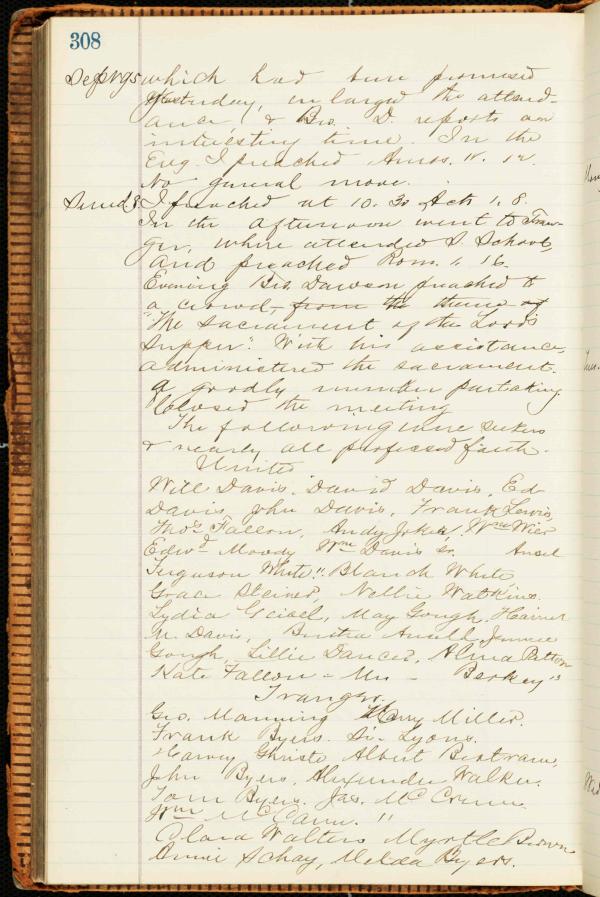 308
which had been promised
yesterday, enlarged the attend-
ance, & Bro. D. reports an
interesting time. In the
Evg. I preached Amos.
No general move.
I preached at 10.30 Acts 1.8.
In the afternoon went to Trau-
ger, where attended S School,
and preached Rom. 1. 16.
Evening Bro Dawson preached to
a crowd, from the theme of
"The Sacrament of the Lord's
Supper". With his assistance,
administered the sacrament.
a goodly number partaking
Closed the meeting
The following were seekers
& nearly all professed faith.
United
Will Davis. David Davis, Ed
Davis, John Davis, Frank Lewis,
Thos. Fallon, Andy Wm Wier
Edwd Moody Wm Davis sr. Ansel
Ferguson White " Blanch White
Grace Steiner, Nellie Watkins.
Lydia Geisel, May Gough, Harriet
M. Davis, Bertha Ansell, Jennie
Gough, Lillie Dancer, Alma Patton
Kate Fallon - Mrs - Berkey "
Trauger.
Geo. Manning Harry Miller.
Frank Byers. Si- Lyons.
Harvey Albert Bertram,
John Byers. Alexander Walker.
Tom Byers. Jas. McCrum
Wm McCann. "
Clara Walters Myrtle Brown
Annie Schay, Melda Byers.